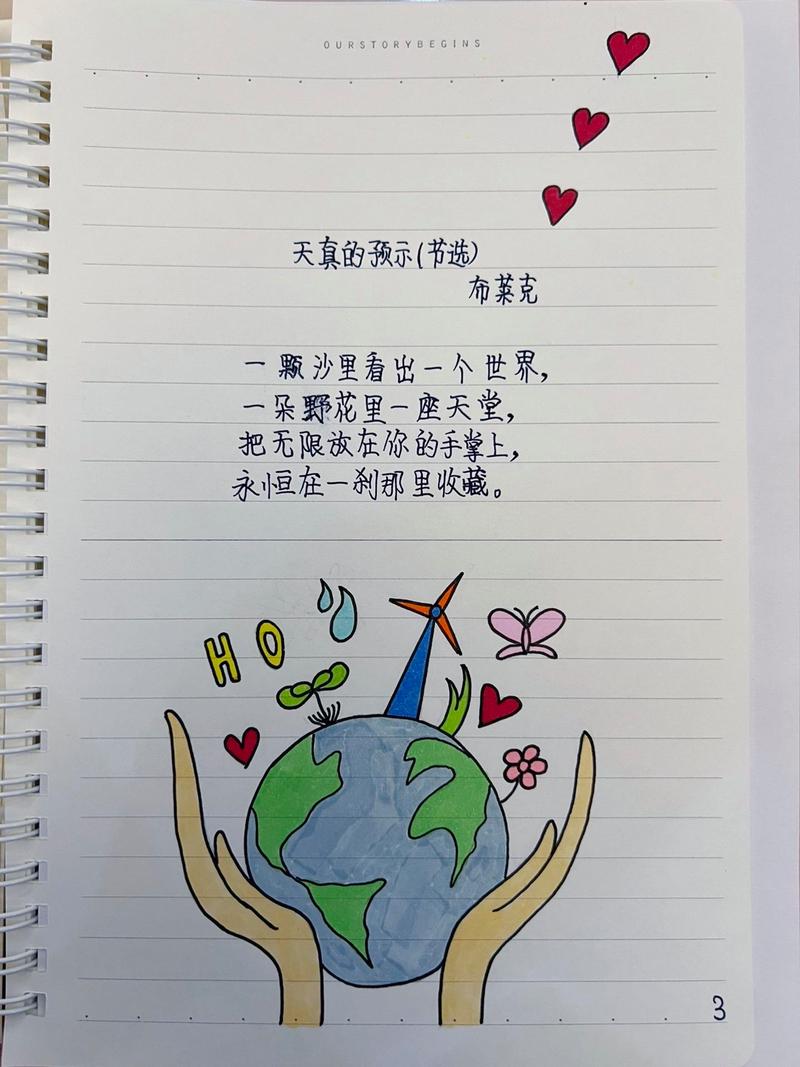 OURSTORYBEGINS
天真的预示(节选)
布莱克
一颗沙里看出一个世界,
一朵野花里一座天堂,
把无限放在你的手掌上,
永恒在一刹那里收藏。
H O
3